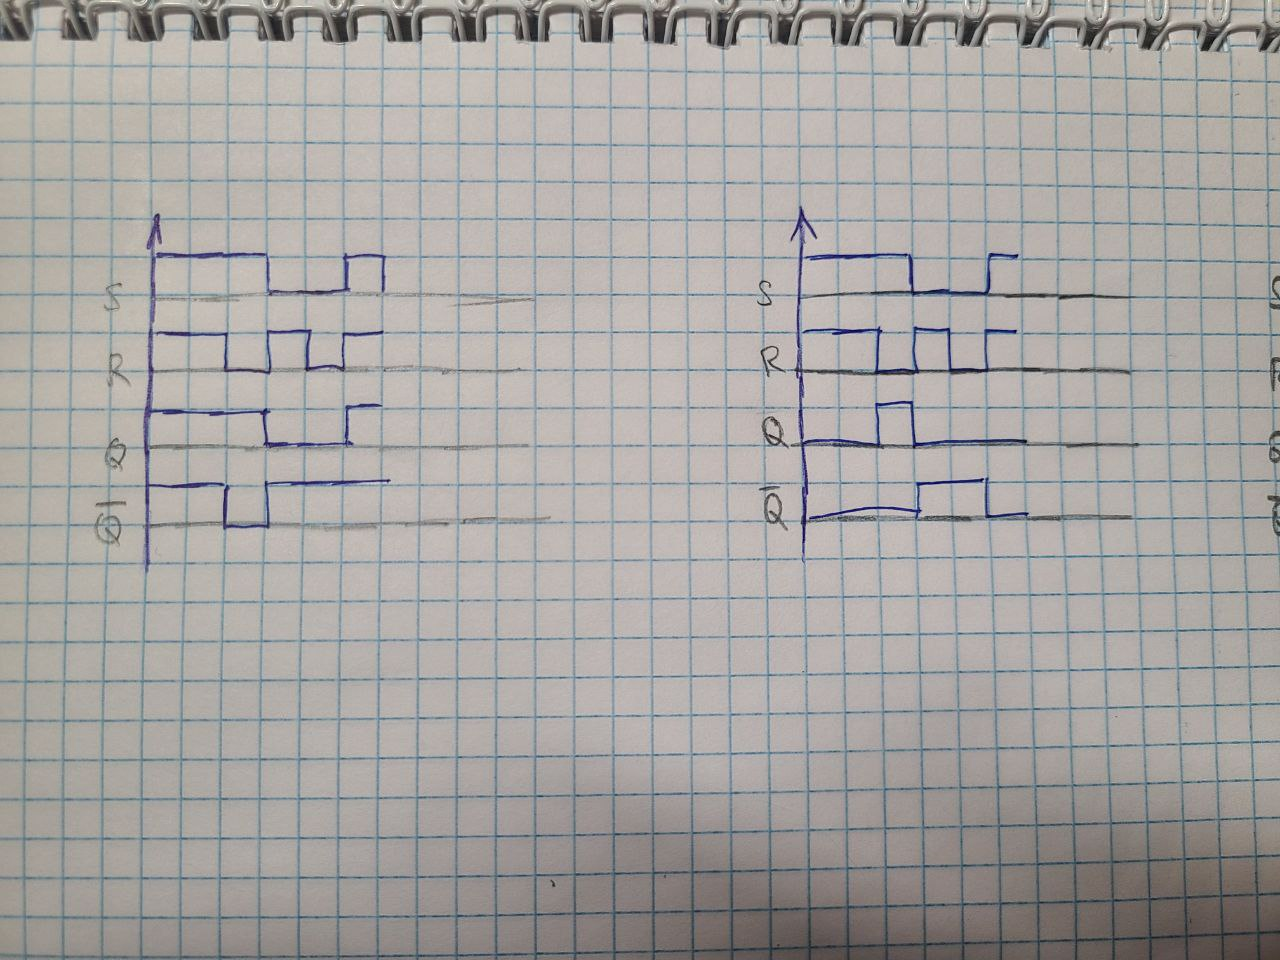 S
R
Q
Q̅
S
R
Q
Q̅